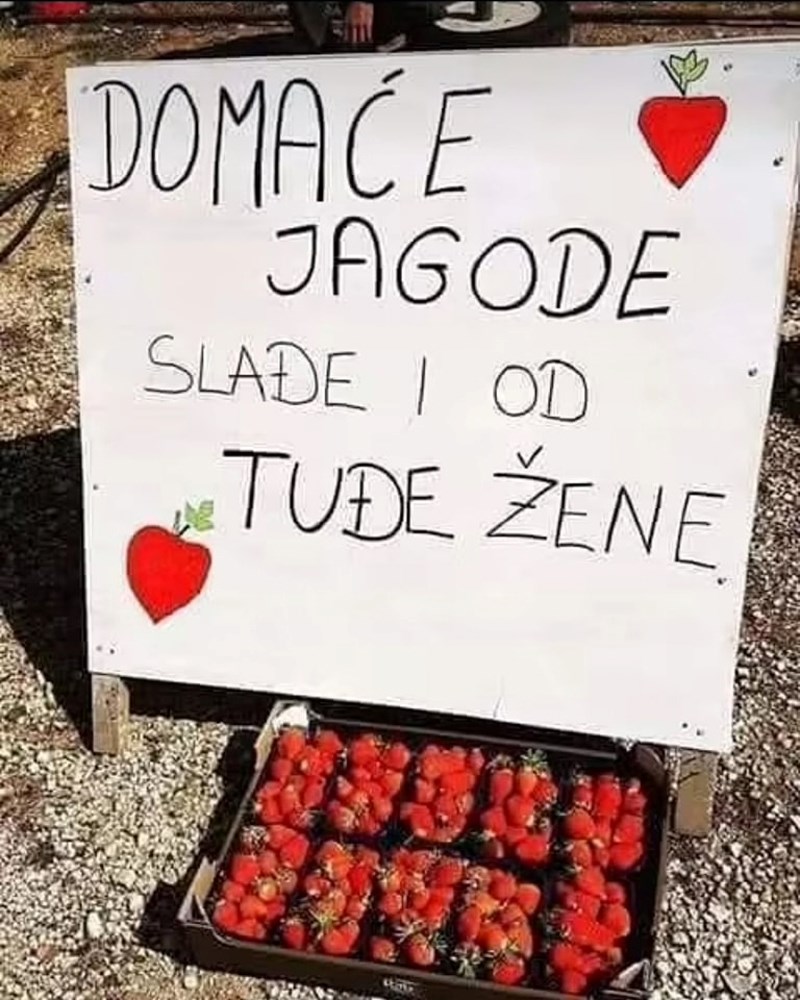 DOMAĆE
JAGODE
SLAĐE I OD
TUĐE ŽENE